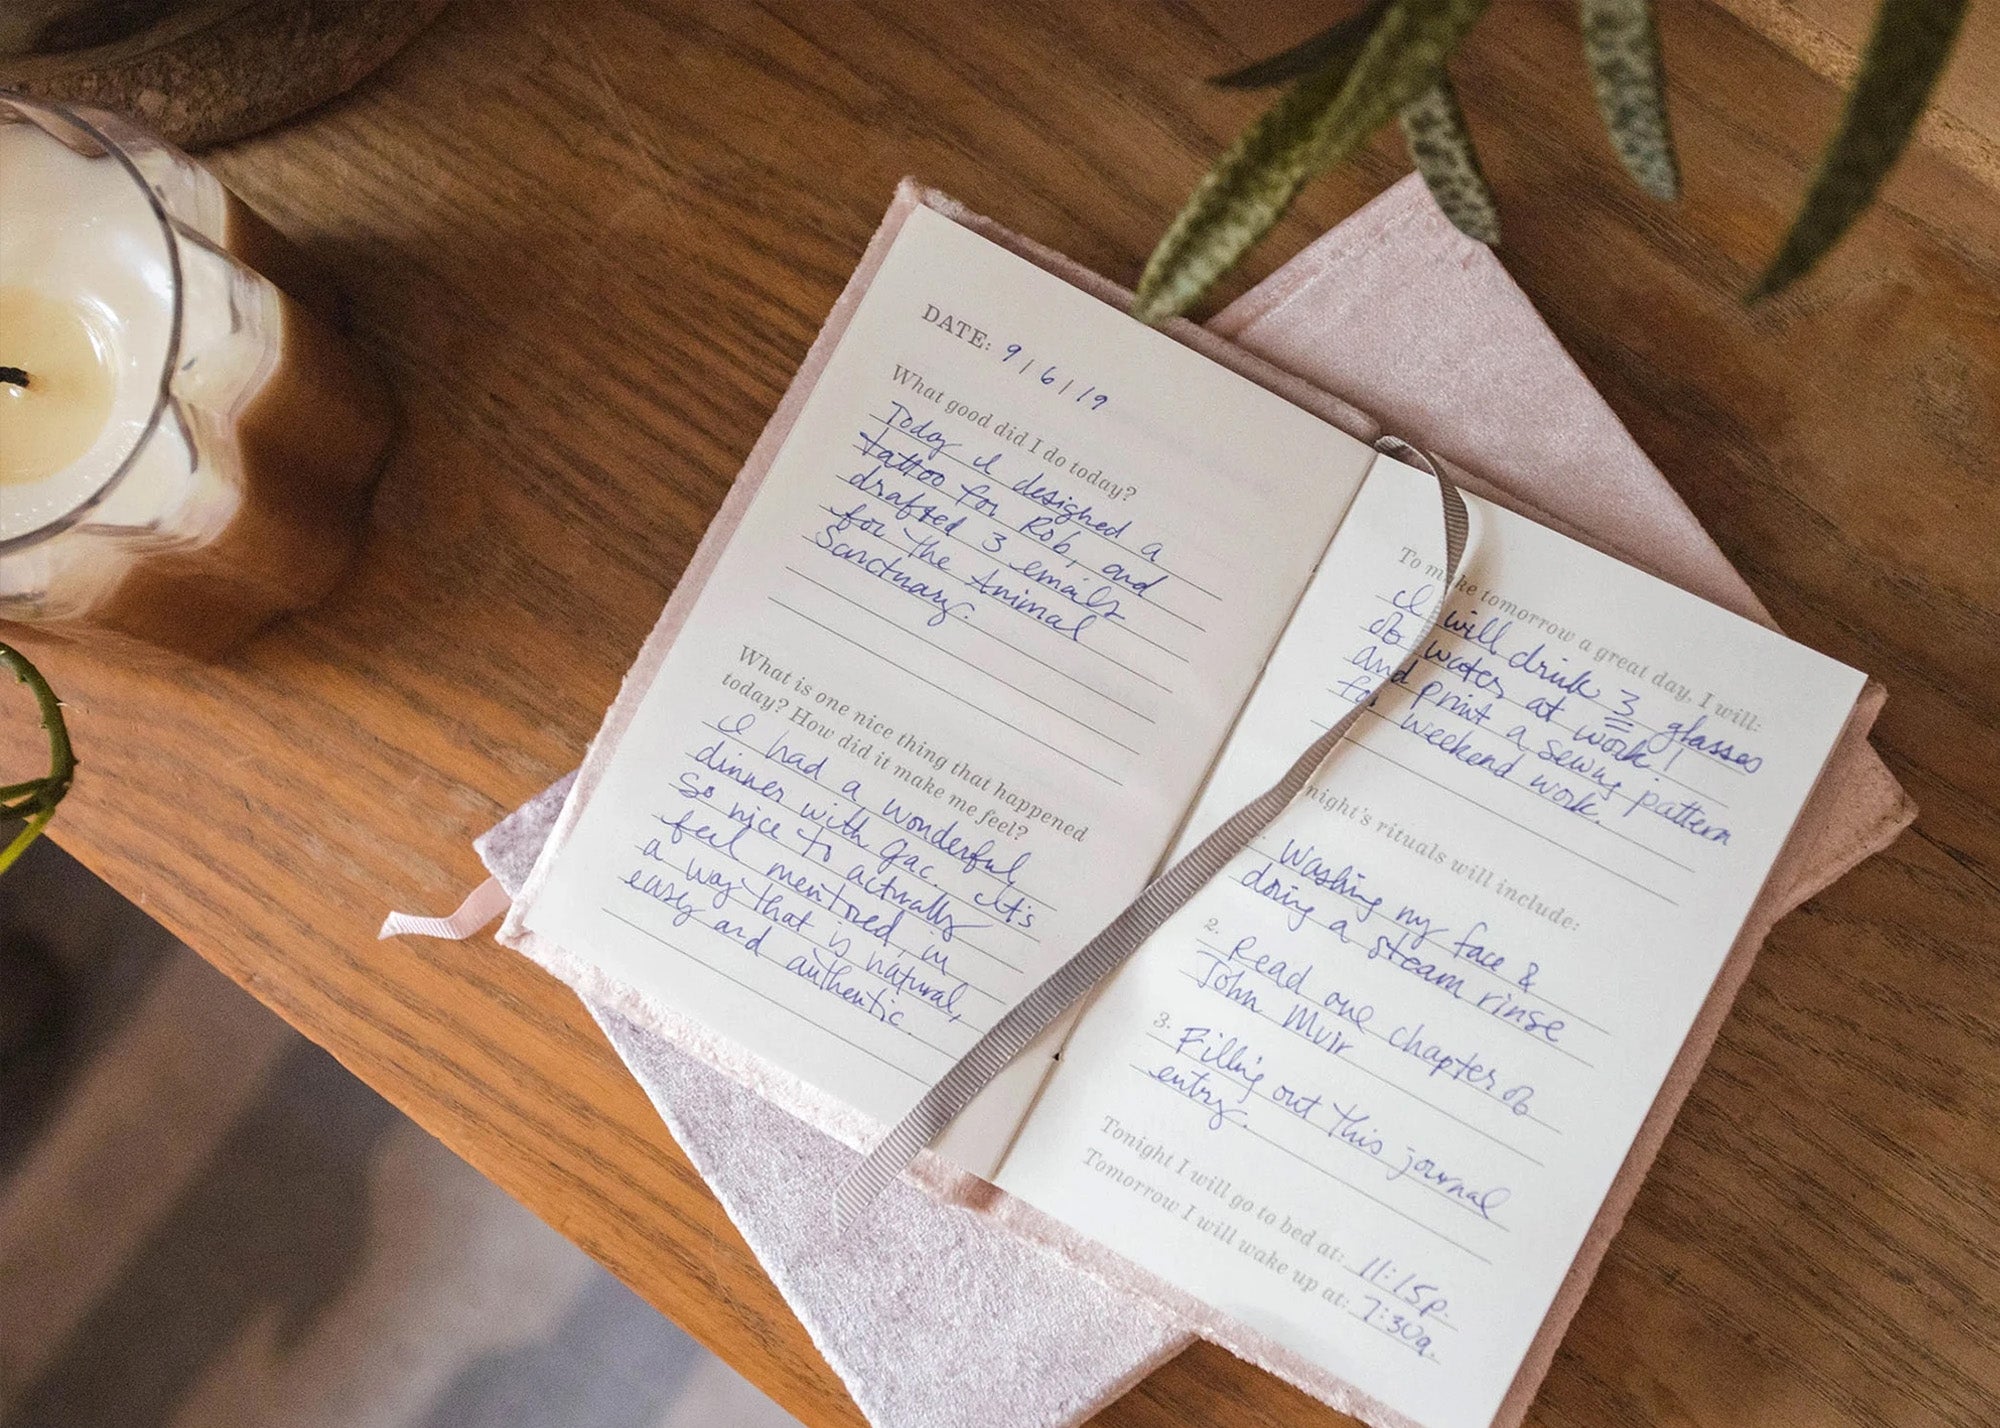 DATE: 9/6/19
What good did I do today?
Today I designed a
tattoo for Rob, and
drafted 3 emails
for the Animal
Sanctuary.
What is one nice thing that happened
today? How did it make me feel?
I had a wonderful
dinner with Gac. It's
so nice to actually
feel mentored, in
a way that is natural,
easy and authentic.
To make tomorrow a great day, I will:
I will drink 3 glasses
of water at work!
and print a sewing pattern
for weekend work.
night's rituals will include:
Washing my face &
doing a steam rinse
2. Read one chapter of
John Muir
3. Filling out this journal
entry.
Tonight I will go to bed at: 11:15p.
Tomorrow I will wake up at: 7:30a.